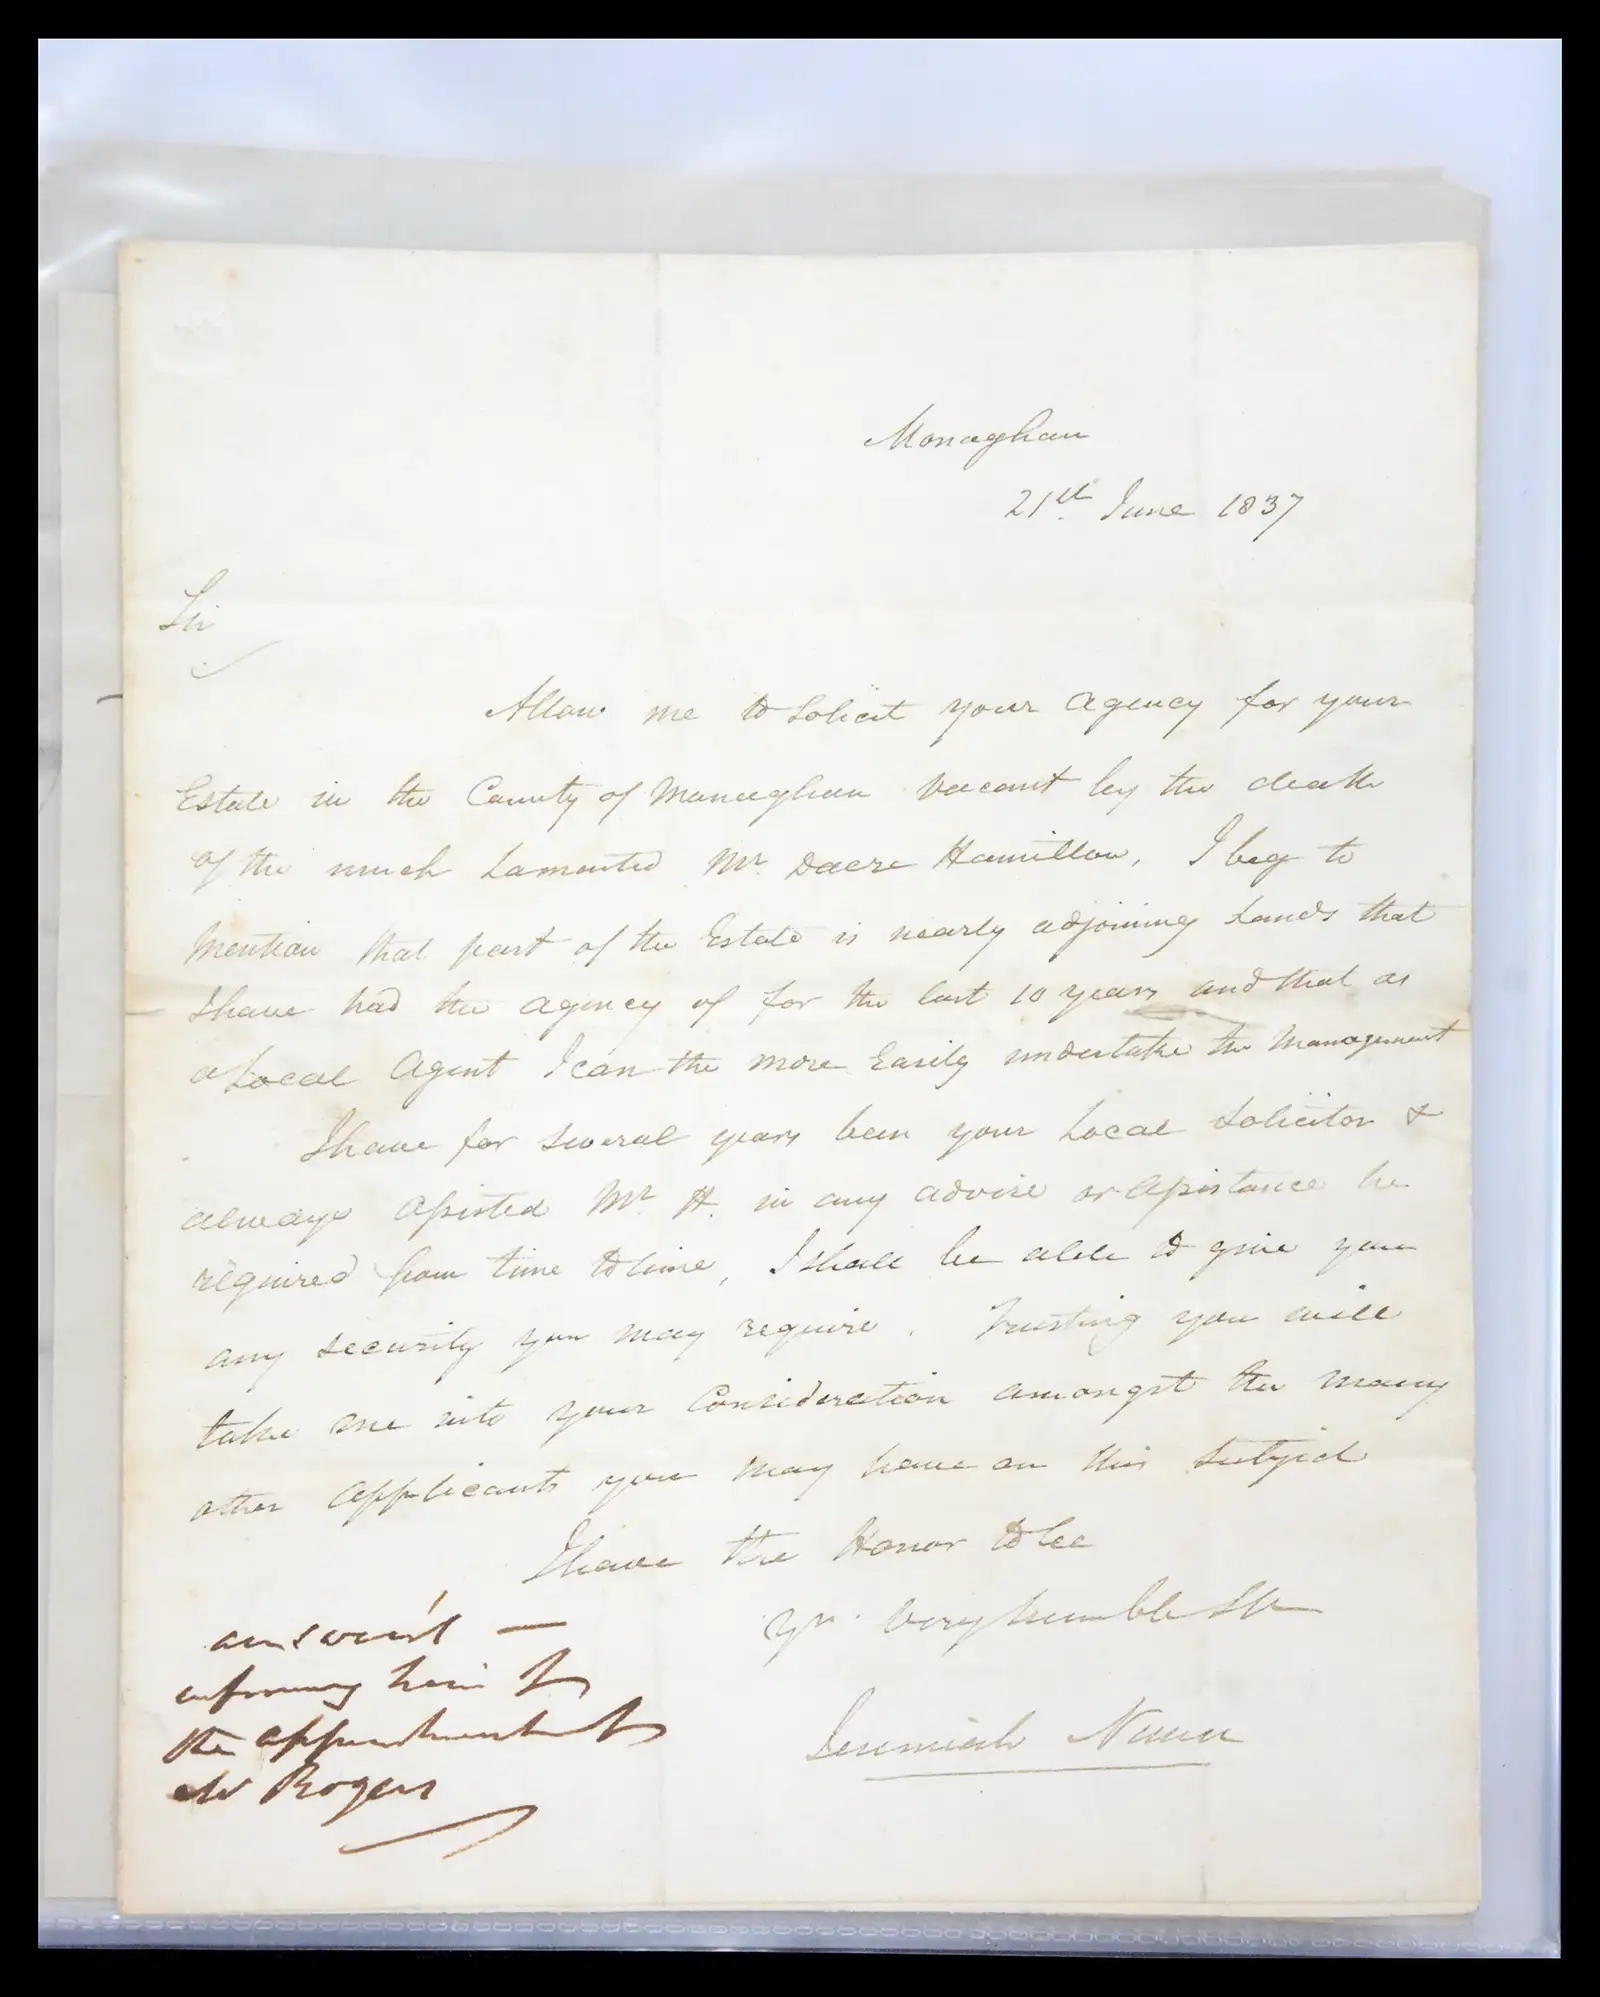 Monaghan
21st June 1837
Sir
Allow me to Solicit your agency for your
Estate in the County of Monaghan vacant by the death
of the much Lamented Mr. Dacre Hamilton, I beg to
Mention that part of the Estate is nearly adjoining Lands that
I have had the agency of for the last 10 years and that as
a Local Agent I can the more Easily undertake the Management
I have for Several years been your Local Solicitor &
always assisted Mr. H. in any advise or assistance he
required from time to time, I shall be able to give you
any security you may require. Trusting you will
take me into your Consideration amongst the many
other applicants you may have on this Subject
I have the Honor to be
Yr. Very humble St
Jeremiah Nunn
answer'd —
informing him of
the appointment of
Mr Rogers